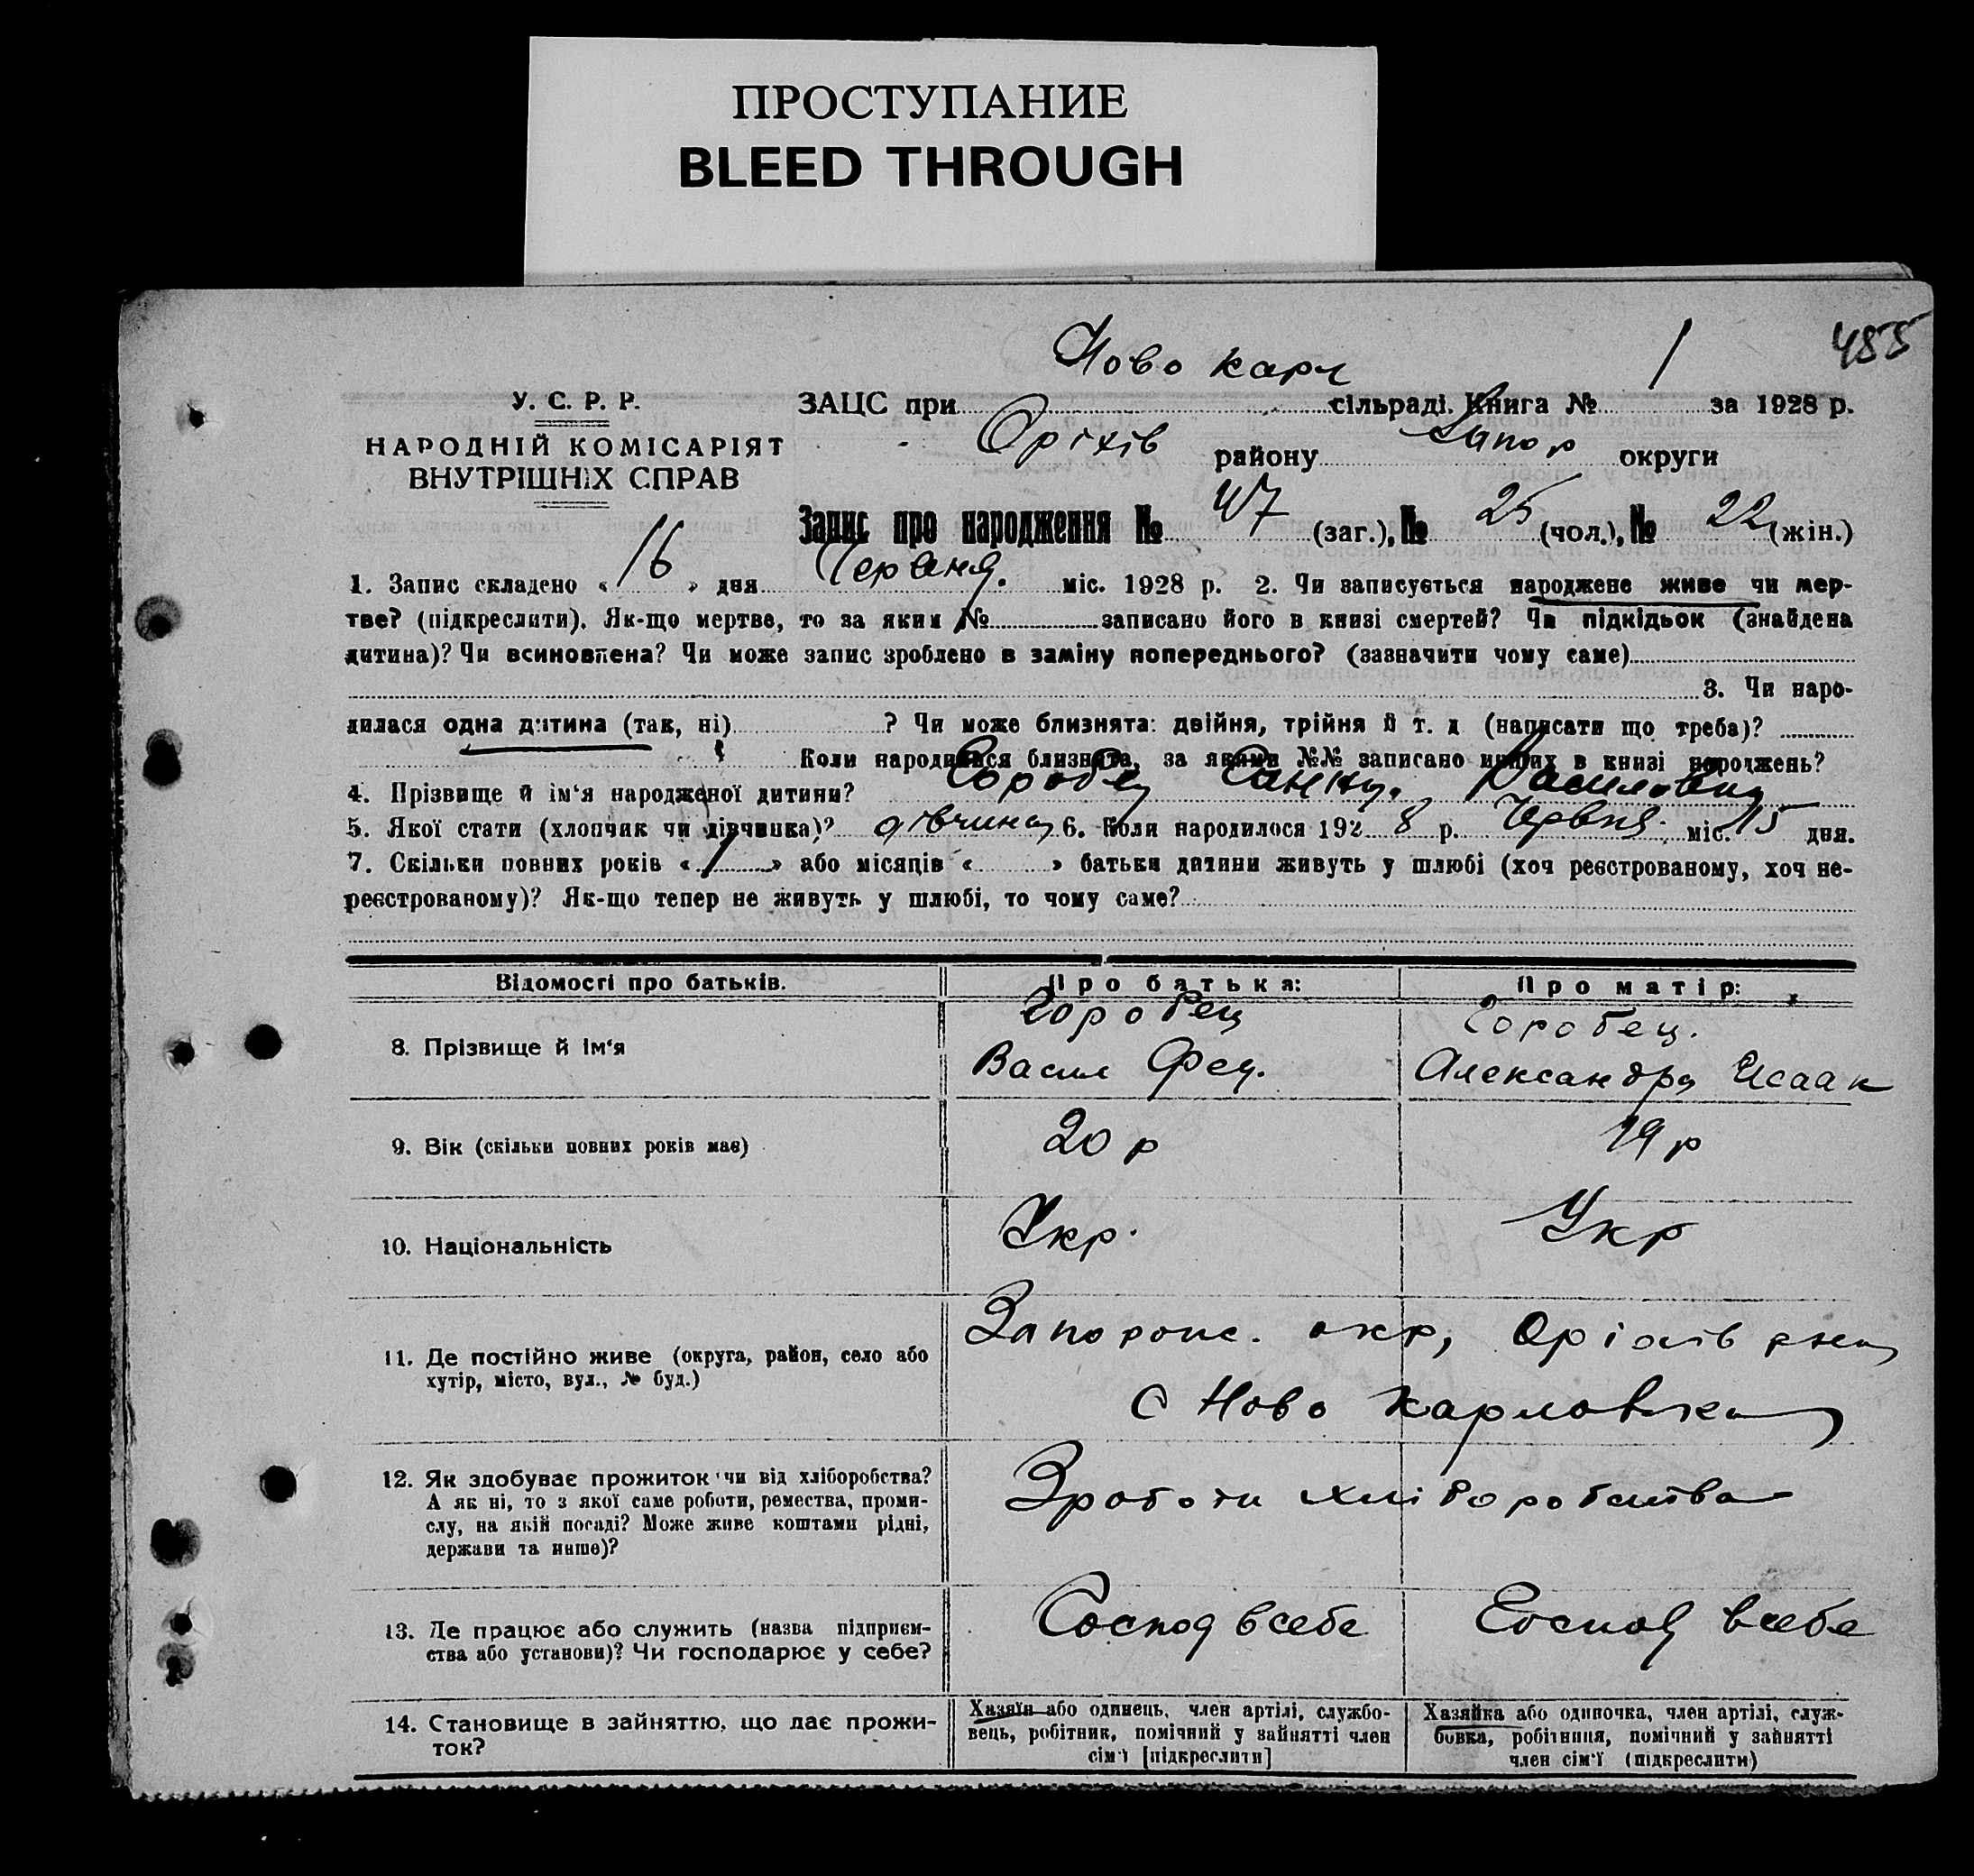 ПРОСТУПАНИЕ
BLEED THROUGH
485
Ново карл 1
У. С. Р. Р.
НАРОДНІЙ КОМІСАРІЯТ
ВНУТРІШНІХ СПРАВ
ЗАЦС при сільраді. Книга № за 1928 р.
Оріхів району Запор округи
Запис про народження № 47 (заг.), № 25 (чол.), № 22 (жін.)
1. Запис складено « 16 » дня Червня. міс. 1928 р. 2. Чи записується народжене живе чи мер-
тве? (підкреслити). Як-що мертве, то за яким № записано його в книзі смертей? Чи підкідьок (знайдена
дитина)? Чи всиновлена? Чи може запис зроблено в заміну попереднього? (зазначити чому саме)
3. Чи наро-
дилася одна дитина (так, ні) ? Чи може близнята: двійня, трійня й т. д (написати що треба)?
Коли народилися близнята, за якими №№ записано инших в книзі народжень?
4. Прізвище й ім‘я народженої дитини? Горобец
5. Якої стати (хлопчик чи дівчинка)? дівчина 6. Коли народилося 192 8 р. Червня. міс. 15 дня.
7. Скільки повних років « 1 » або місяців « » батьки дитини живуть у шлюбі (хоч реєстрованому, хоч не-
реєстрованому)? Як-що тепер не живуть у шлюбі, то чому саме?
Відомості про батьків. Про батька: Про матір:
8. Прізвище й ім‘я
Горобец
Васил Фед.
Горобец.
Александра Исаак
9. Вік (скільки повних років має) 20 р 19 р
10. Національність Укр. Укр
11. Де постійно живе (округа, район, село або
хутір, місто, вул., № буд.)
окр, Оріхів
с Ново Карловка
12. Як здобуває прожиток чи від хліборобства?
А як ні, то з якої саме роботи, ремества, проми-
слу, на якій посаді? Може живе коштами рідні,
держави та инше)?
Зроботи хліборобства
13. Де працює або служить (назва підприєм-
ства або установи)? Чи господарює у себе?
Господ всебе Господ всебе
14. Становище в зайняттю, що дає прожи-
ток?
Хазяїн або одинець, член артілі, службо-
вець, робітник, помічний у зайнятті член
сім‘ї [підкреслити]
Хазяйка або одиночка, член артілі, служ-
бовка, робітниця, помічний у зайнятті
член сім‘ї (підкреслити)